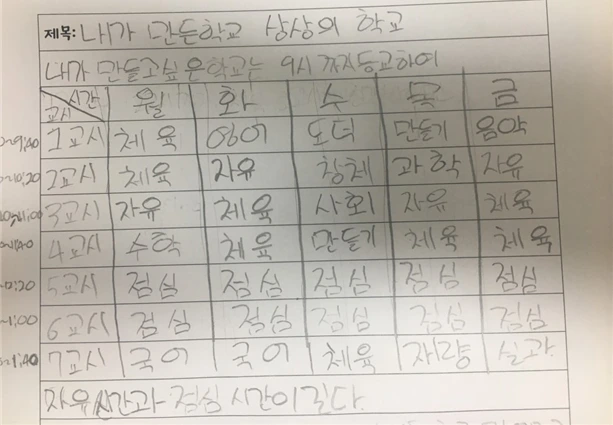 제목: 내가 만든학교 상상의 학교
내가 만들고싶은학교는 9시 까지등교하여
시간 교시 월 화 수 목 금
~9:40 1교시 체육 영어 도덕 만들기 음악
~10:20 2교시 체육 자유 창체 과학 자유
~11:00 3교시 자유 체육 사회 자유 체육
4교시 수학 체육 만들기 체육 체육
5교시 점심 점심 점심 점심 점심
~1:00 6교시 점심 점심 점심 점심 점심
~1:40 7교시 국어 국어 체육 재량 실과
자유시간과 점심 시간이 길다.